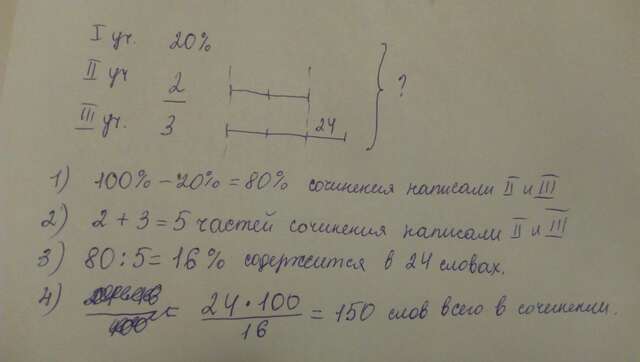 I уч. 20%
II уч 2
III уч. 3 24 ?
1) 100% - 20% = 80% сочинения написали II и III
2) 2 + 3 = 5 частей сочинения написали II и III
3) 80 : 5 = 16% содержится в 24 словах.
4) = 24 · 100 / 16 = 150 слов всего в сочинении.